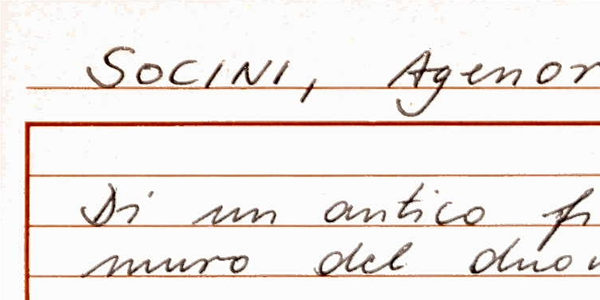 SOCINI, Agenor
Di un antico
muro del duo